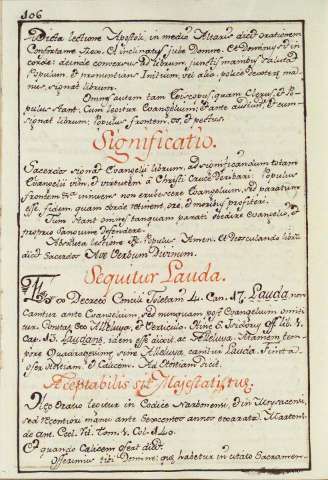 106
Dicta lectione Apostoli, in medio Altaris dicit orationem
Confortame Rex. Et inclinatus jube Domne. Et Dominus sit in
corde: deinde conversus ad librum, junctis manibus salutat
Populum, et pronuntians Initium, vel aliud, police dexteræ ma-
nus signat librum.
Omnes autem tam Episcopus, quam Clerus, et Po-
pulus stant, Cum legitur Evangelium, et ante audiunt, et cum
signat librum; Populus frontem, os, et pectus.
Significatio.
Sacerdos signat Evangelii librum, ad significandum totam
Evangelii vim, et virtutem à Christi Cruce derivari. Populus
frontem &c. innuens non erubescere Evangelium, sed paratum
esse fidem, quam corde retinent, ore, et moribus profiteri.
Tum stant omnes tanquam parati obedire Evangelio, et
proprio Sanguine defendere.
Absoluta lectione R. Populus Amen. et Deosculando librum
dicit Sacerdos Ave Verbum Divinum.
Sequitur Lauda.
Decreto Concilii Toletani 4. Can. 17. Lauda, non
cantur ante Evangelium, sed nunquam post Evangelium omitti-
tur. Constat ex Alleluya, et Versiculo. Sine S. Isidoro Off. lib. 1.
Cap. 13. Laudans, idem esse dicat ac Alleluya. Attamen tem-
pore Quadragesimæ, sine Alleluya cantur Lauda. Finita
ofert Hostiam, et Calicem. Ad Hostiam dicit.
Acceptabilis sit Majestati tuæ.
Hæc Oratio legitur in Codice Narbonensi, et in Illyricensi,
sed recentiori manu ante sexcentos annos exarata. Marten.
de Ant. Eccl. Rit. Tom. 1. Col. 140.
Et quando Calicem ofert dicit:
Offerimus tibi Domine: quæ habetur in citato Sacramen-